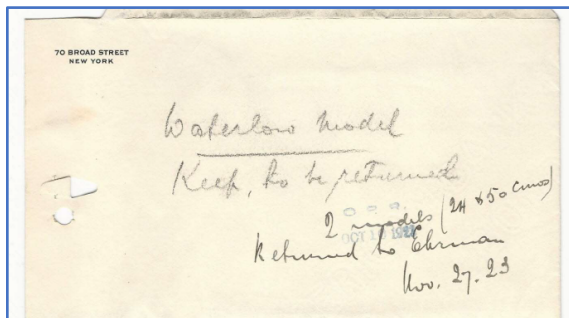 70 BROAD STREET
NEW YORK
Waterlow model
Keep, to be returned
2 models (24 & 50 Cmos)
OCT 19
Returned to Ehrman
Nov. 27. 23